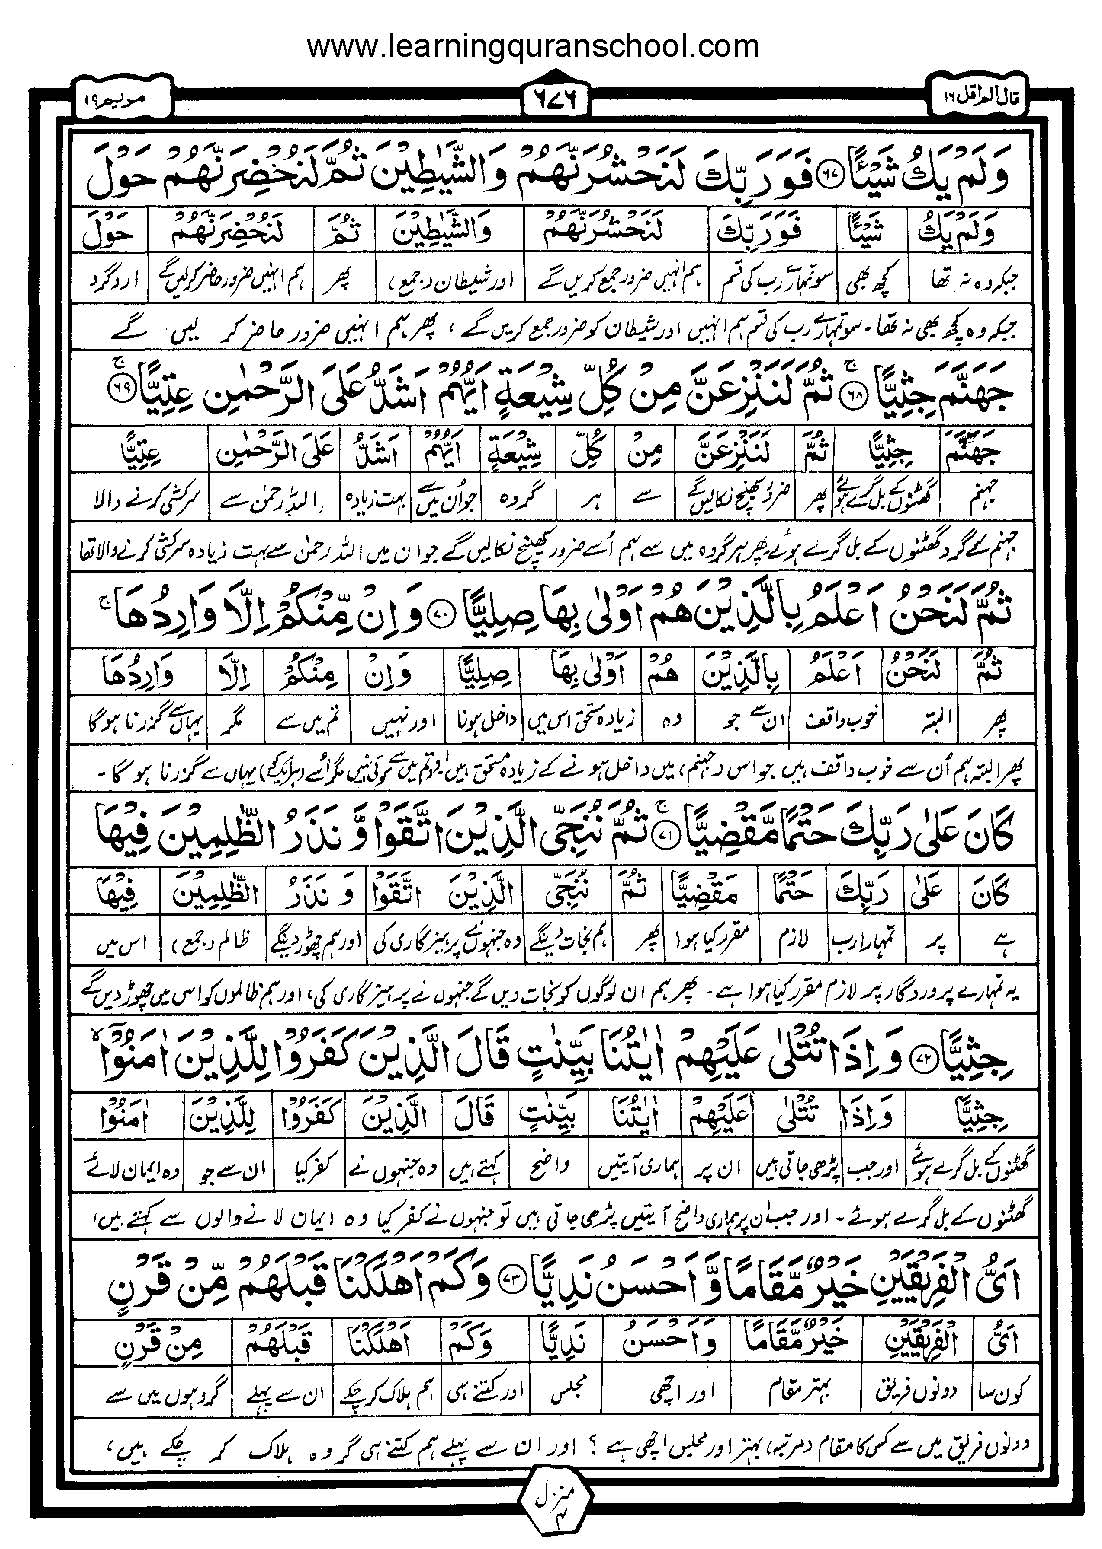 www.learningquranschool.com
قال الم اقل ١٦
٦٧٦
مريم ١٩
وَلَمْ يَكُ شَيْـًٔا ﴿٦٧﴾ فَوَرَبِّكَ لَنَحْشُرَنَّهُمْ وَالشَّيٰطِيْنَ ثُمَّ لَنُحْضِرَنَّهُمْ حَوْلَ
وَلَمْ يَكُ شَيْـًٔا فَوَرَبِّكَ لَنَحْشُرَنَّهُمْ وَالشَّيٰطِيْنَ ثُمَّ لَنُحْضِرَنَّهُمْ حَوْلَ
جبکہ وہ نہ تھا کچھ بھی سو تمہارے رب کی قسم ہم انہیں ضرور جمع کریں گے اور شیطان (جمع) پھر ہم انہیں ضرور حاضر کر لیں گے ارد گرد
جبکہ وہ کچھ بھی نہ تھا۔ سو تمہارے رب کی قسم ہم انہیں اور شیطان کو ضرور جمع کریں گے، پھر ہم انہیں ضرور حاضر کر لیں گے
جَهَنَّمَ جِثِيًّا ﴿٦٨﴾ۚ ثُمَّ لَنَنْزِعَنَّ مِنْ كُلِّ شِيْعَةٍ اَيُّهُمْ اَشَدُّ عَلَى الرَّحْمٰنِ عِتِيًّا ﴿٦٩﴾ۚ
جَهَنَّمَ جِثِيًّا ثُمَّ لَنَنْزِعَنَّ مِنْ كُلِّ شِيْعَةٍ اَيُّهُمْ اَشَدُّ عَلَى الرَّحْمٰنِ عِتِيًّا
جہنم گھٹنوں کے بل گرے ہوئے پھر ضرور کھینچ نکالیں گے سے ہر گروہ جو ان میں سے بہت زیادہ اللہ رحمٰن سے سرکشی کرنے والا
جہنم کے گرد گھٹنوں کے بل گرے ہوئے پھر ہر گروہ میں سے ہم اُسے ضرور کھینچ نکالیں گے جو ان میں اللہ رحمٰن سے بہت زیادہ سرکشی کرنے والا تھا
ثُمَّ لَنَحْنُ اَعْلَمُ بِالَّذِيْنَ هُمْ اَوْلٰى بِهَا صِلِيًّا ﴿٧٠﴾ وَاِنْ مِّنْكُمْ اِلَّا وَارِدُهَا ۚ
ثُمَّ لَنَحْنُ اَعْلَمُ بِالَّذِيْنَ هُمْ اَوْلٰى بِهَا صِلِيًّا وَاِنْ مِنْكُمْ اِلَّا وَارِدُهَا
پھر البتہ خوب واقف ان سے جو وہ زیادہ مستحق اس میں داخل ہونا اور نہیں تم میں سے مگر یہاں سے گزرنا ہوگا
پھر البتہ ہم اُن سے خوب واقف ہیں جو اس (جہنم) میں داخل ہونے کے زیادہ مستحق ہیں تم میں سے کوئی نہیں مگر اُسے یہاں سے گزرنا ہو گا۔
كَانَ عَلٰى رَبِّكَ حَتْمًا مَّقْضِيًّا ﴿٧١﴾ۚ ثُمَّ نُنَجِّى الَّذِيْنَ اتَّقَوْا وَّ نَذَرُ الظّٰلِمِيْنَ فِيْهَا
كَانَ عَلٰى رَبِّكَ حَتْمًا مَقْضِيًّا ثُمَّ نُنَجِّى الَّذِيْنَ اتَّقَوْا وَ نَذَرُ الظّٰلِمِيْنَ فِيْهَا
ہے پر تمہارا رب لازم مقرر کیا ہوا پھر ہم نجات دینگے وہ جنہوں نے پرہیزگاری کی اور ہم چھوڑ دینگے ظالم (جمع) اس میں
یہ تمہارے پروردگار پر لازم مقرر کیا ہوا ہے۔ پھر ہم ان لوگوں کو نجات دیں گے جنہوں نے پرہیزگاری کی، اور ہم ظالموں کو اس میں چھوڑ دیں گے
جِثِيًّا ﴿٧٢﴾ وَاِذَا تُتْلٰى عَلَيْهِمْ اٰيٰتُنَا بَيِّنٰتٍ قَالَ الَّذِيْنَ كَفَرُوْا لِلَّذِيْنَ اٰمَنُوْٓا ۙ
جِثِيًّا وَاِذَا تُتْلٰى عَلَيْهِمْ اٰيٰتُنَا بَيِّنٰتٍ قَالَ الَّذِيْنَ كَفَرُوْا لِلَّذِيْنَ اٰمَنُوْا
گھٹنوں کے بل گرے ہوئے اور جب پڑھی جاتی ہیں ان پر ہماری آیتیں واضح کہتے ہیں وہ جنہوں نے کفر کیا ان سے جو وہ ایمان لائے
گھٹنوں کے بل گرے ہوئے۔ اور جب ان پر ہماری واضح آیتیں پڑھی جاتی ہیں تو جنہوں نے کفر کیا وہ ایمان لانے والوں سے کہتے ہیں،
اَىُّ الْفَرِيْقَيْنِ خَيْرٌ مَّقَامًا وَّاَحْسَنُ نَدِيًّا ﴿٧٣﴾ وَكَمْ اَهْلَكْنَا قَبْلَهُمْ مِّنْ قَرْنٍ
اَىُّ الْفَرِيْقَيْنِ خَيْرٌ مَّقَامًا وَاَحْسَنُ نَدِيًّا وَكَمْ اَهْلَكْنَا قَبْلَهُمْ مِنْ قَرْنٍ
کون سا دونوں فریق بہتر مقام اور اچھی مجلس اور کتنے ہی ہم ہلاک کر چکے ان سے پہلے گروہوں میں سے
دونوں فریق میں سے کس کا مقام (مرتبہ) بہتر اور مجلس اچھی ہے؟ اور ان سے پہلے ہم کتنے ہی گروہ ہلاک کر چکے ہیں،
منزل
٤